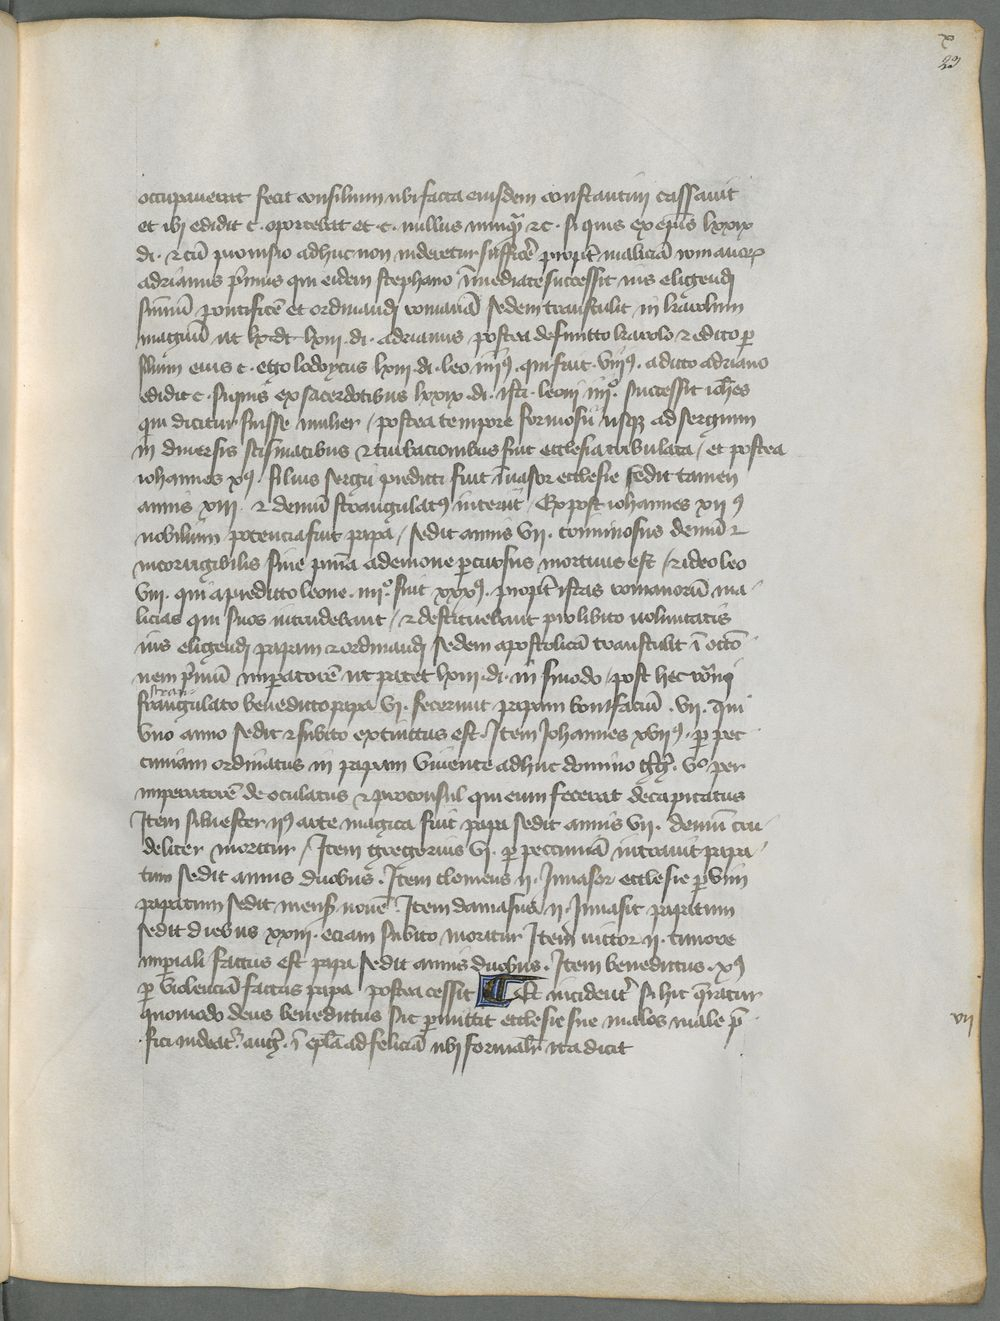 occupauerat fecit consilium ubi facta eiusdem constantini cassauit
et ibi edidit c. oportebat et c. nullus nunq̃ ⁊c. si quis ex ep̄is lxxix
di. ⁊ cū prouisio adhuc non videretur sufficē propt̄ maliciā romanorꝝ
adrianus p̃mus qui eidem stephano īmediate successit ius eligendi
sūmū pontificē et ordinandi romanā sedem transtulit in karolum
magnū ut hr̄ dt̄ lxiii. di. adrianus postea defuncto karolo ⁊ edito ꝑ
filium eius c. ego lodoycus lxiii. di. leo iiiiꝰ. qui fuit. viiiꝰ. a dicto adriano
edidit c. si quis ex sacerdotibus lxxix. di. isti. leoni iiiiº. successit ioh̄es
qui dicitur fuisse mulier / postea tempore formosii usqꝫ ad sergium
in diuersis scismatibus ⁊ turbacionibus fuit ecclesia tribulata / et postea
iohannes xꝰ. filius sergii predicti fuit īuasor ecclesie sedit tamen
annis xiii. ⁊ demū strangulatꝰ interiit / Ex post iohannes xiiꝰ
nobilium potencia fuit papa / sedit annis vii. criminosus demū ⁊
incorrigibilis sine pnīa a demone ꝑcussus mortuus est / ⁊ ideo leo
viii. qui a predicto leone. iiiiº. fuit xxxꝰ. propt̄ istas romanorū ma
licias qui suos intrudebant / ⁊ destituebant pro libito uoluntatis
ius eligendi papam ⁊ ordinandi sedem apostolicā transtulit ī otto
nem p̃mū imꝑatorē ut patet lxiii. di. in sinodo / post hec
stran
frangulato benedicto papa vi. fecerunt papam bonifaciū. vii. qui
vno anno sedit ⁊ subito extinctus est. Item Iohannes xviiꝰ. ꝑ pec
cuniam ordinatus in papam viuente adhuc domino vº per
imperatorē de oculatus ⁊ proconsul qui eum fecerat decapitatus
Item siluester iiꝰ arte magica fuit papa sedit annis vii. demū cru
deliter moritur / Item gregorius vi. ꝑ peccuniā intrauit papa
tum sedit annis duobus. Item clemens ii. Inuasor ecclesie ꝑ vim
papatum sedit mensꝫ nouē. Item damasus. ii. Inuasit papatum
sedit diebus xxiii. eciam subito moritur Item uictor ii. timore
imꝑiali factus est papa sedit annis duobus. Item benedictus. xꝰ
ꝑ violenciā factus papa postea cessit ¶ Et incident̄ si hic q̄ratur
quomodo deus benedictus sic ꝑmittit ecclesie sue malos male p̄
fici augꝰ. ī epl̄a ad feliciā ubi formalr̄ ita dicit
vii